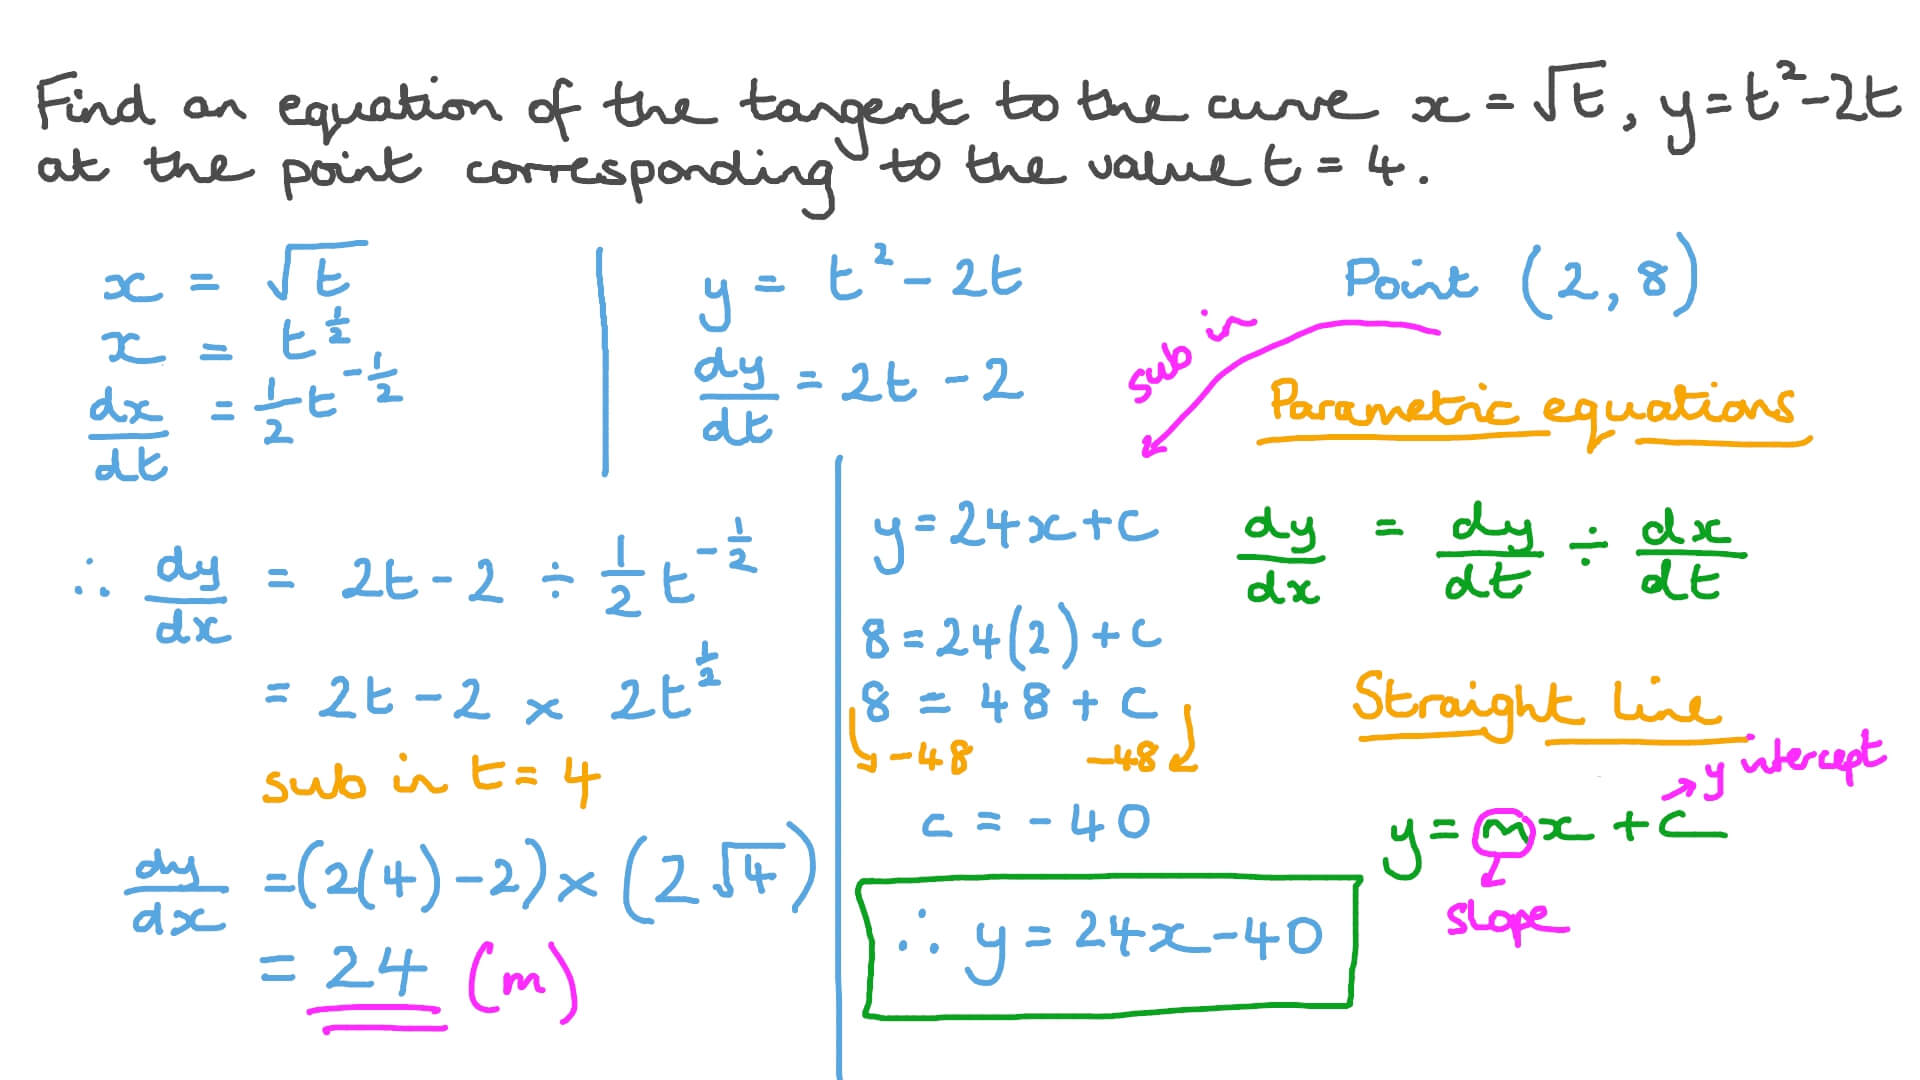 Find an equation of the tangent to the curve x = √t, y = t² - 2t
at the point corresponding to the value t = 4.
x = √t
x = t^½
dx/dt = ½t^-½
y = t² - 2t
dy/dt = 2t - 2
Point (2, 8)
sub in
Parametric equations
dy/dx = dy/dt ÷ dx/dt
∴ dy/dx = 2t - 2 ÷ ½t^-½
= 2t - 2 × 2t^½
sub in t = 4
dy/dx = (2(4) - 2) × (2√4)
= 24 (m)
y = 24x + c
8 = 24(2) + c
8 = 48 + c
-48 -48
c = -40
∴ y = 24x - 40
Straight line
y intercept
y = mx + c
slope